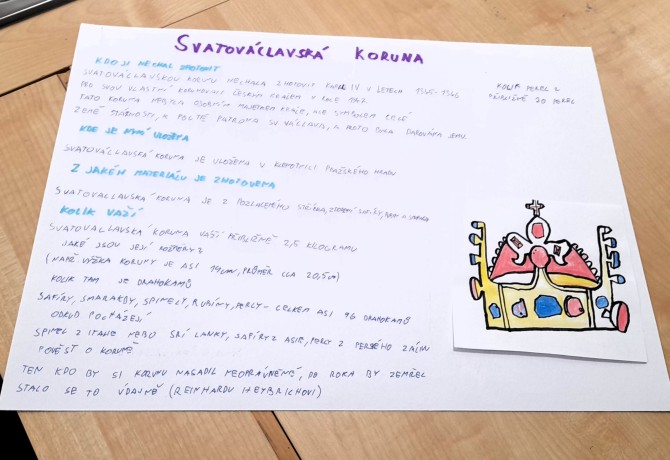 SVATOVÁCLAVSKÁ KORUNA
KDO JI NECHAL ZHOTOVIT
SVATOVÁCLAVSKOU KORUNU NECHAL ZHOTOVIT KAREL IV V LETECH 1345-1346
PRO SVOU VLASTNÍ KORUNOVACI ČESKÝM KRÁLEM V ROCE 1347.
TATO KORUNA NEBYLA OSOBNÍM MAJETKEM KRÁLE, ALE SYMBOLEM CELÉ
ZEMĚ STÁTNOSTI, K POCTĚ PATRONA SV VÁCLAVA, A PROTO BYLA DAROVÁNA JEMU.
KOLIK PEREL Z
PŘIBLIŽNĚ 20 PEREL
KDE JE NYNÍ ULOŽENA
SVATOVÁCLAVSKÁ KORUNA JE ULOŽENA V KORUNNÍ PRAŽSKÉHO HRADU
Z JAKÉH MATERIÁLU JE ZHOTOVENA
SVATOVACLAVSKÁ KORUNA JE Z POZLACENÉHO
KOLIK VAŽÍ
SVATOVACLAVSKÁ KORUNA VAŽÍ PŘIBLIŽNĚ 2,5 KILOGRAMU
JAKÉ JSOU JEJÍ ROZMĚRY Z
VÝŠKA KORUNY JE ASI 19cm, PRŮMĚR CCA 20,5cm)
KOLIK TAM JE DRAHOKAMŮ
SAFÍRY, SMARAGDY, SPINELY, RUBÍNY, PERLY - CELKEM ASI 96 DRAHOKAMŮ
ODKUD POCHÁZEJÍ
SPINEL Z NEBO SRÍ LANKY, SAFÍRY Z ASIE, PERLY Z PERSKÉHO ZÁLIVU
POVĚST O KORUNĚ
TEN KDO BY SI KORUNU NASADIL NEOPRÁVNĚNĚ, DO ROKA BY ZEMŘEL
STALO SE TO ÚDAJNĚ (REINHARDU HEYDRICHOVI)